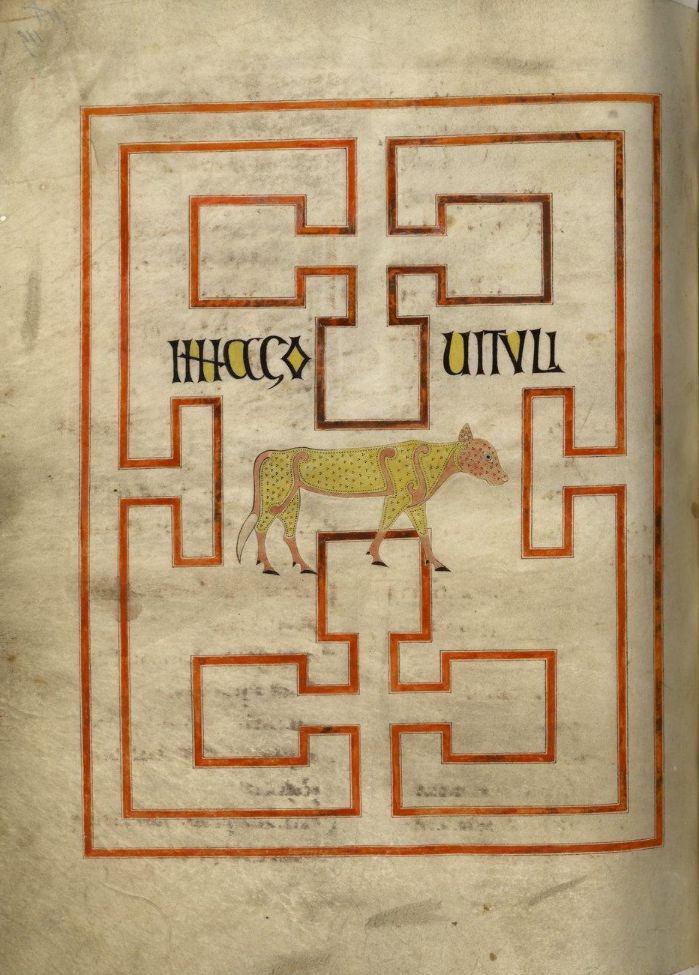 IMAGO UITVLI